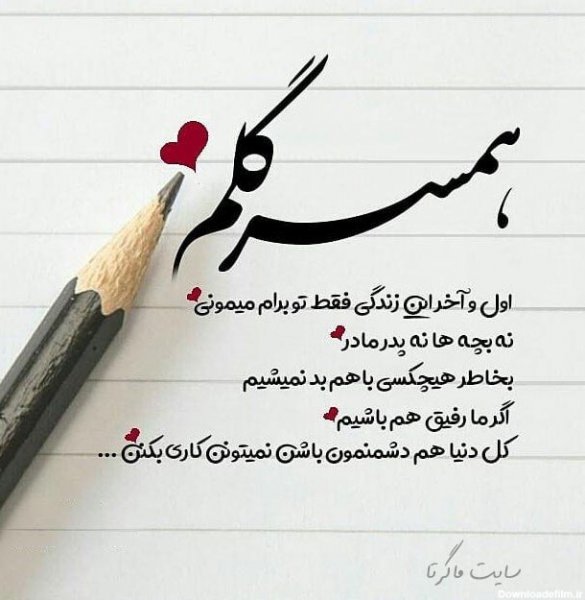 همسر گلم،
اول و آخر این زندگی فقط تو برام میمونی
نه بچه ها نه پدر مادر
بخاطر هیچکسی باهم بد نمیشیم
اگر ما رفیق هم باشیم
کل دنیا هم دشمنمون باشن نمیتونن کاری بکنن ...
سایت ماگرتا
Downloadefilm.ir